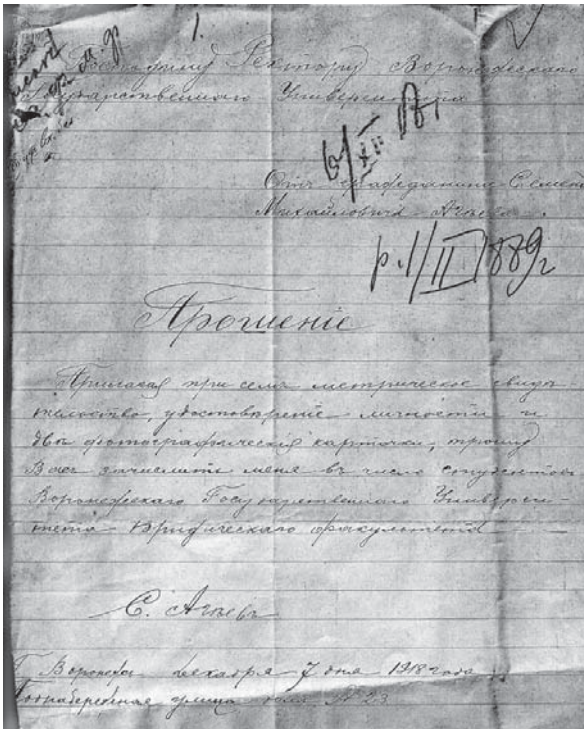 1.
Господину Ректору Воронежскаго
Государственнаго Университета
6/XII 18 г.
Отъ гражданина Семена
Михайловича Агѣева.
р. 1/II 1889 г
Прошеніе
Прилагая при семъ метрическое свидѣ-
тельство, удостовѣреніе личности и
двѣ фотографическія карточки, прошу
Васъ зачислить меня въ число студентовъ
Воронежскаго Государственнаго Универси-
тета Юридическаго факультета
С. Агѣевъ
Г. Воронежъ декабря 7 дня 1918 года
улица, домъ № 23